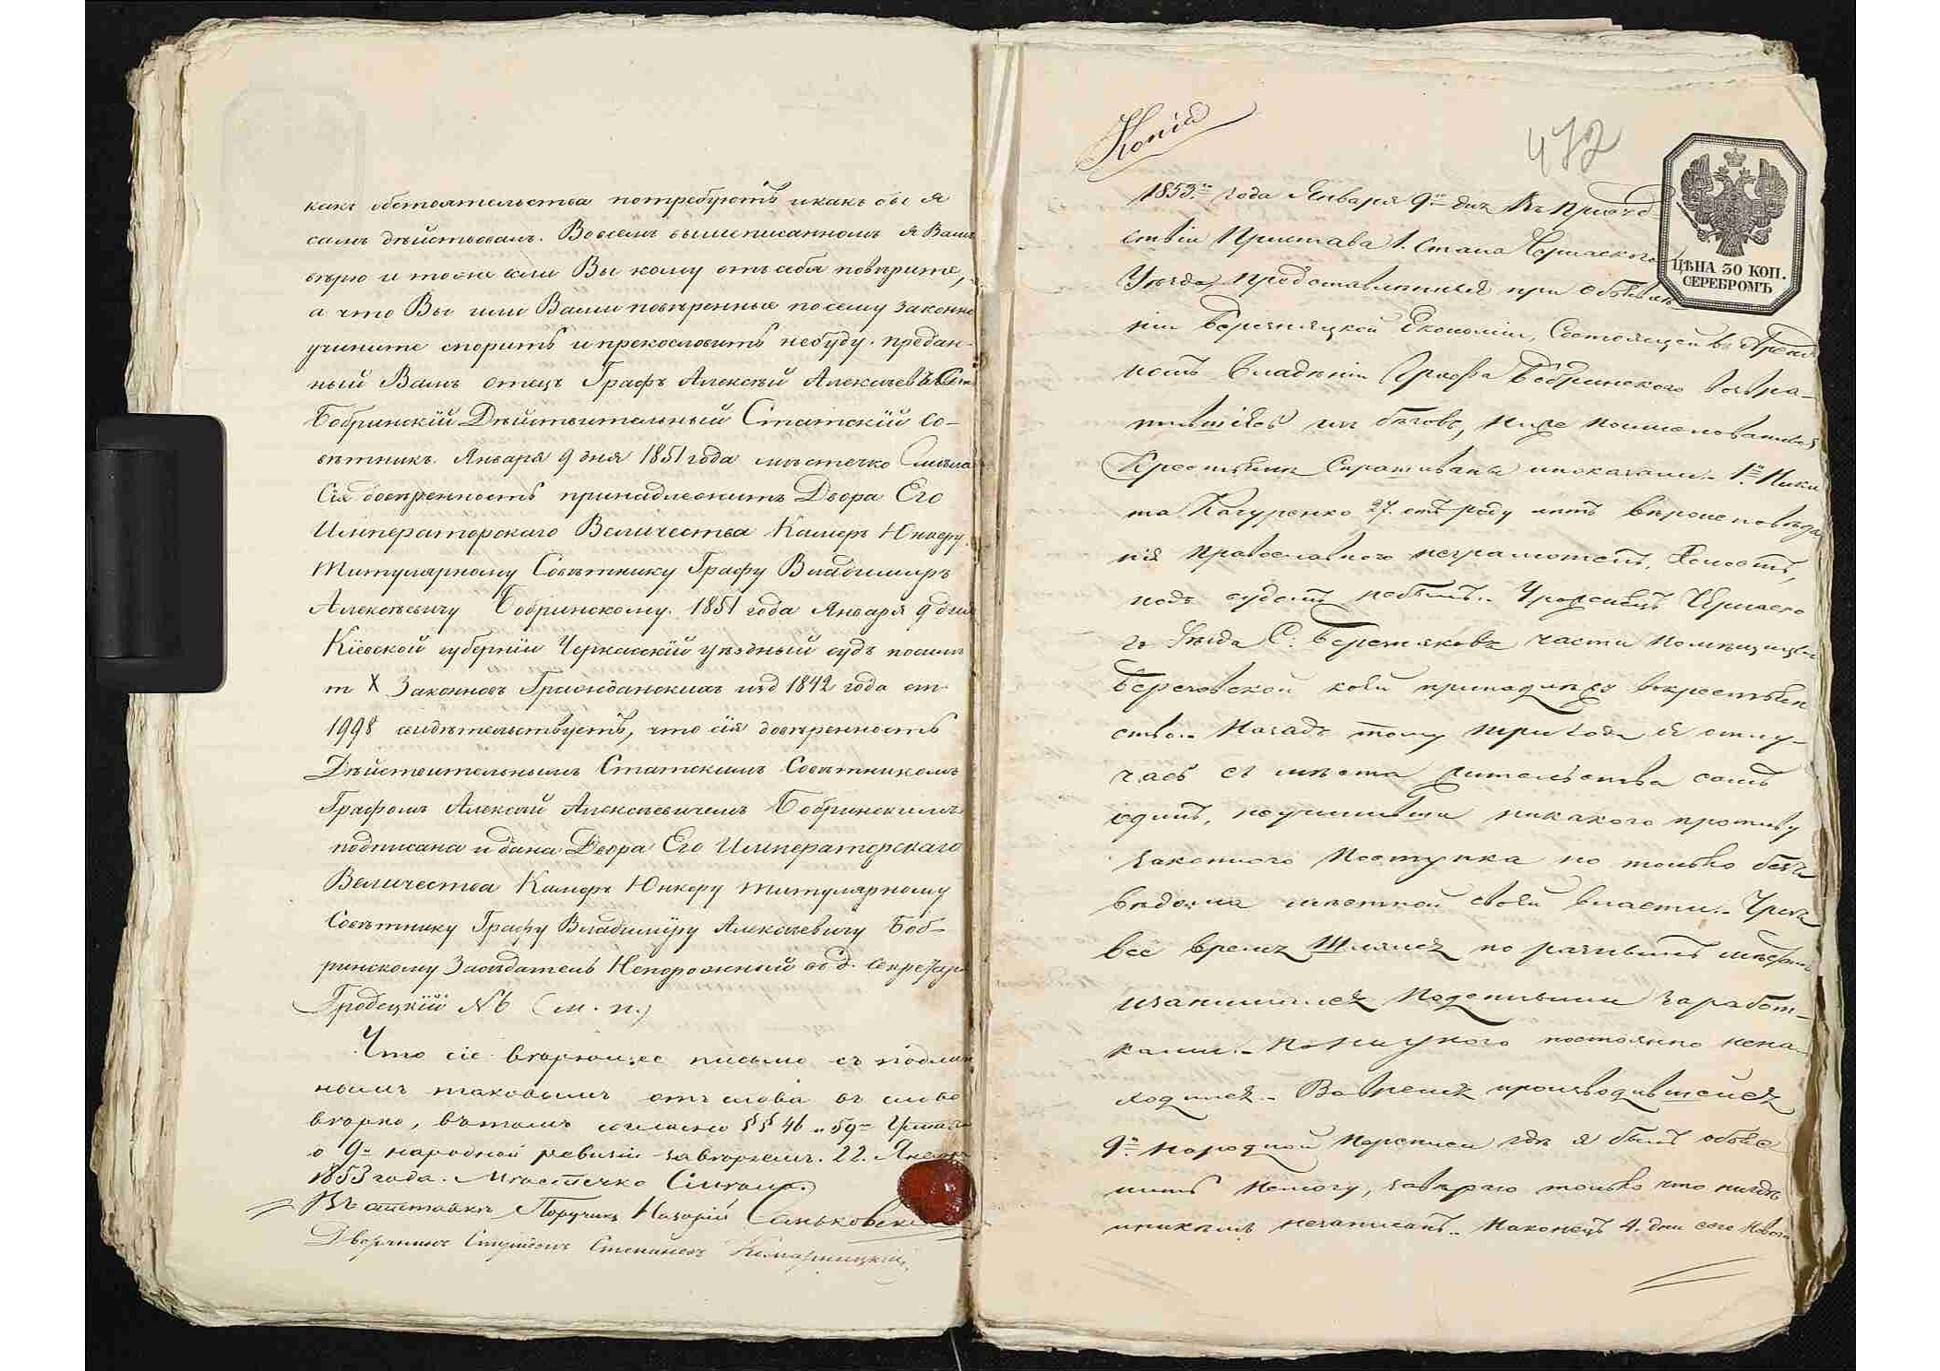 какъ обстоятельства потребуютъ и какъ бы я
самъ дѣйствовалъ. Во всемъ вышеписанномъ я Вамъ
вѣрю и тоже если Вы кому отъ себя повѣрите,
а что Вы или Вами повѣренные по сему законно
учините спорить и прекословить небуду. предан-
ный Вамъ отецъ Графъ Алексѣй Алексѣевъ Сынъ
Бобринскій Дѣйствительный Статскій Со-
вѣтникъ. Января 9 дня 1851 года мѣстечко Смѣла
Сія довѣренность принадлежитъ Двора Его
Императорскаго Величества Камеръ Юнкеру
Титулярному Совѣтнику Графу Владимиръ
Алексѣевичу Бобринскому. 1851 года Января 9 дня
Кіевской губерніи Черкасскій уѣздный судъ по силѣ
т X Законовъ Гражданскихъ изд 1842 года ст.
1998 свидѣтельствуетъ, что сія довѣренность
Дѣйствительнымъ Статскимъ Совѣтникомъ
Графомъ Алексѣй Алексѣевичемъ Бобринскимъ
подписана и дана Двора Его Императорскаго
Величества Камеръ Юнкеру титулярному
Совѣтнику Графу Владиміру Алексѣевичу Боб-
ринскому Засѣдатель Непорожный в д. секретаря
Гродецкій № 6 (м. п.)
Что сіе вѣрющее письмо съ подлин
нымъ таковымъ отъ слова въ слово
вѣрно, въ томъ согласно §§ 46 и 59 Устава
о 9й народной ревизіи завѣряемъ. 22. Января
1853 года. Мѣстечко Смѣла.
Въ отставкѣ Поручикъ Назарій Саньковскій
Дворянинъ Комарницкій
Копія
472
ЦѢНА 30 КОП.
СЕРЕБРОМЪ
1853го года Января 9го дня Въ Присуд
ствіи Пристава 1. Стана Черкаского
Уѣзда, представленныя при объявле
ніи Березняцкой Економіи, Состоящей въ
ность владѣніи Графа Бобринского возвра-
тившійся изъ бѣговъ, ниже поименованные
Крестьяне Спрашиваны и показали. 1й Ники
та Качуренко 27. отъ роду лѣтъ вѣроисповѣда
нія православного неграмотенъ, Холостъ,
подъ судомъ небылъ. Уроженецъ Черкаско
го Уѣзда С. Березняковъ части помѣщицы
Березовской коей принадлежу въ крестьян
ство. Назадъ тому три года я отлу-
часъ съ мѣста жительства самъ
одинъ, неучинивши никакого противу
законного поступка но только безъ
вѣдома мѣстной своей власти. Чрезъ
всё время Шлялся по разнымъ мѣстамъ
изанимался поденными заработ-
ками. Но ни у кого постоянно нена-
ходился. Во время производившейся
9й народной переписи гдѣ я былъ объяс
нить немогу, завѣряю только что нигдѣ
иникѣмъ незаписанъ. Наконецъ 4. дня сего